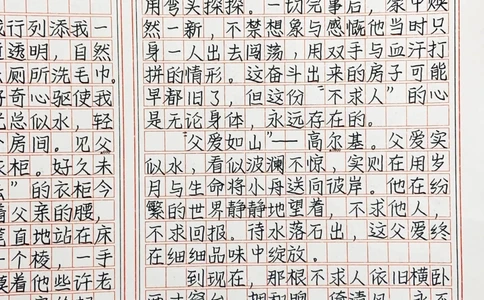 我行列添我一
透明，自然
么厕所洗毛巾。
好奇心驱使我
光总似水，轻
个房间。见父
衣柜。好久未
去”的衣柜今
着父亲的腰，
笔直地站在床
一个棱，一手
摸着他些许老
用弯头探探。一切完事后，家中焕
然一新，不禁想象与感慨他当时只
身一人出去闯荡，用双手与血汗打
拼的情形。这奋斗出来的房子可能
早都旧了，但这份“不求人”的心
是无论身体，永远存在的。
“父爱如山”——高尔基。父爱实
似水，看似波澜不惊，实则在用岁
月与生命将小舟送向彼岸。他在纷
繁的世界静静地望着，不求他人，
不求回报。待水落石出，这父爱终
在细细品味中绽放。
到现在，那根不求人依旧横卧